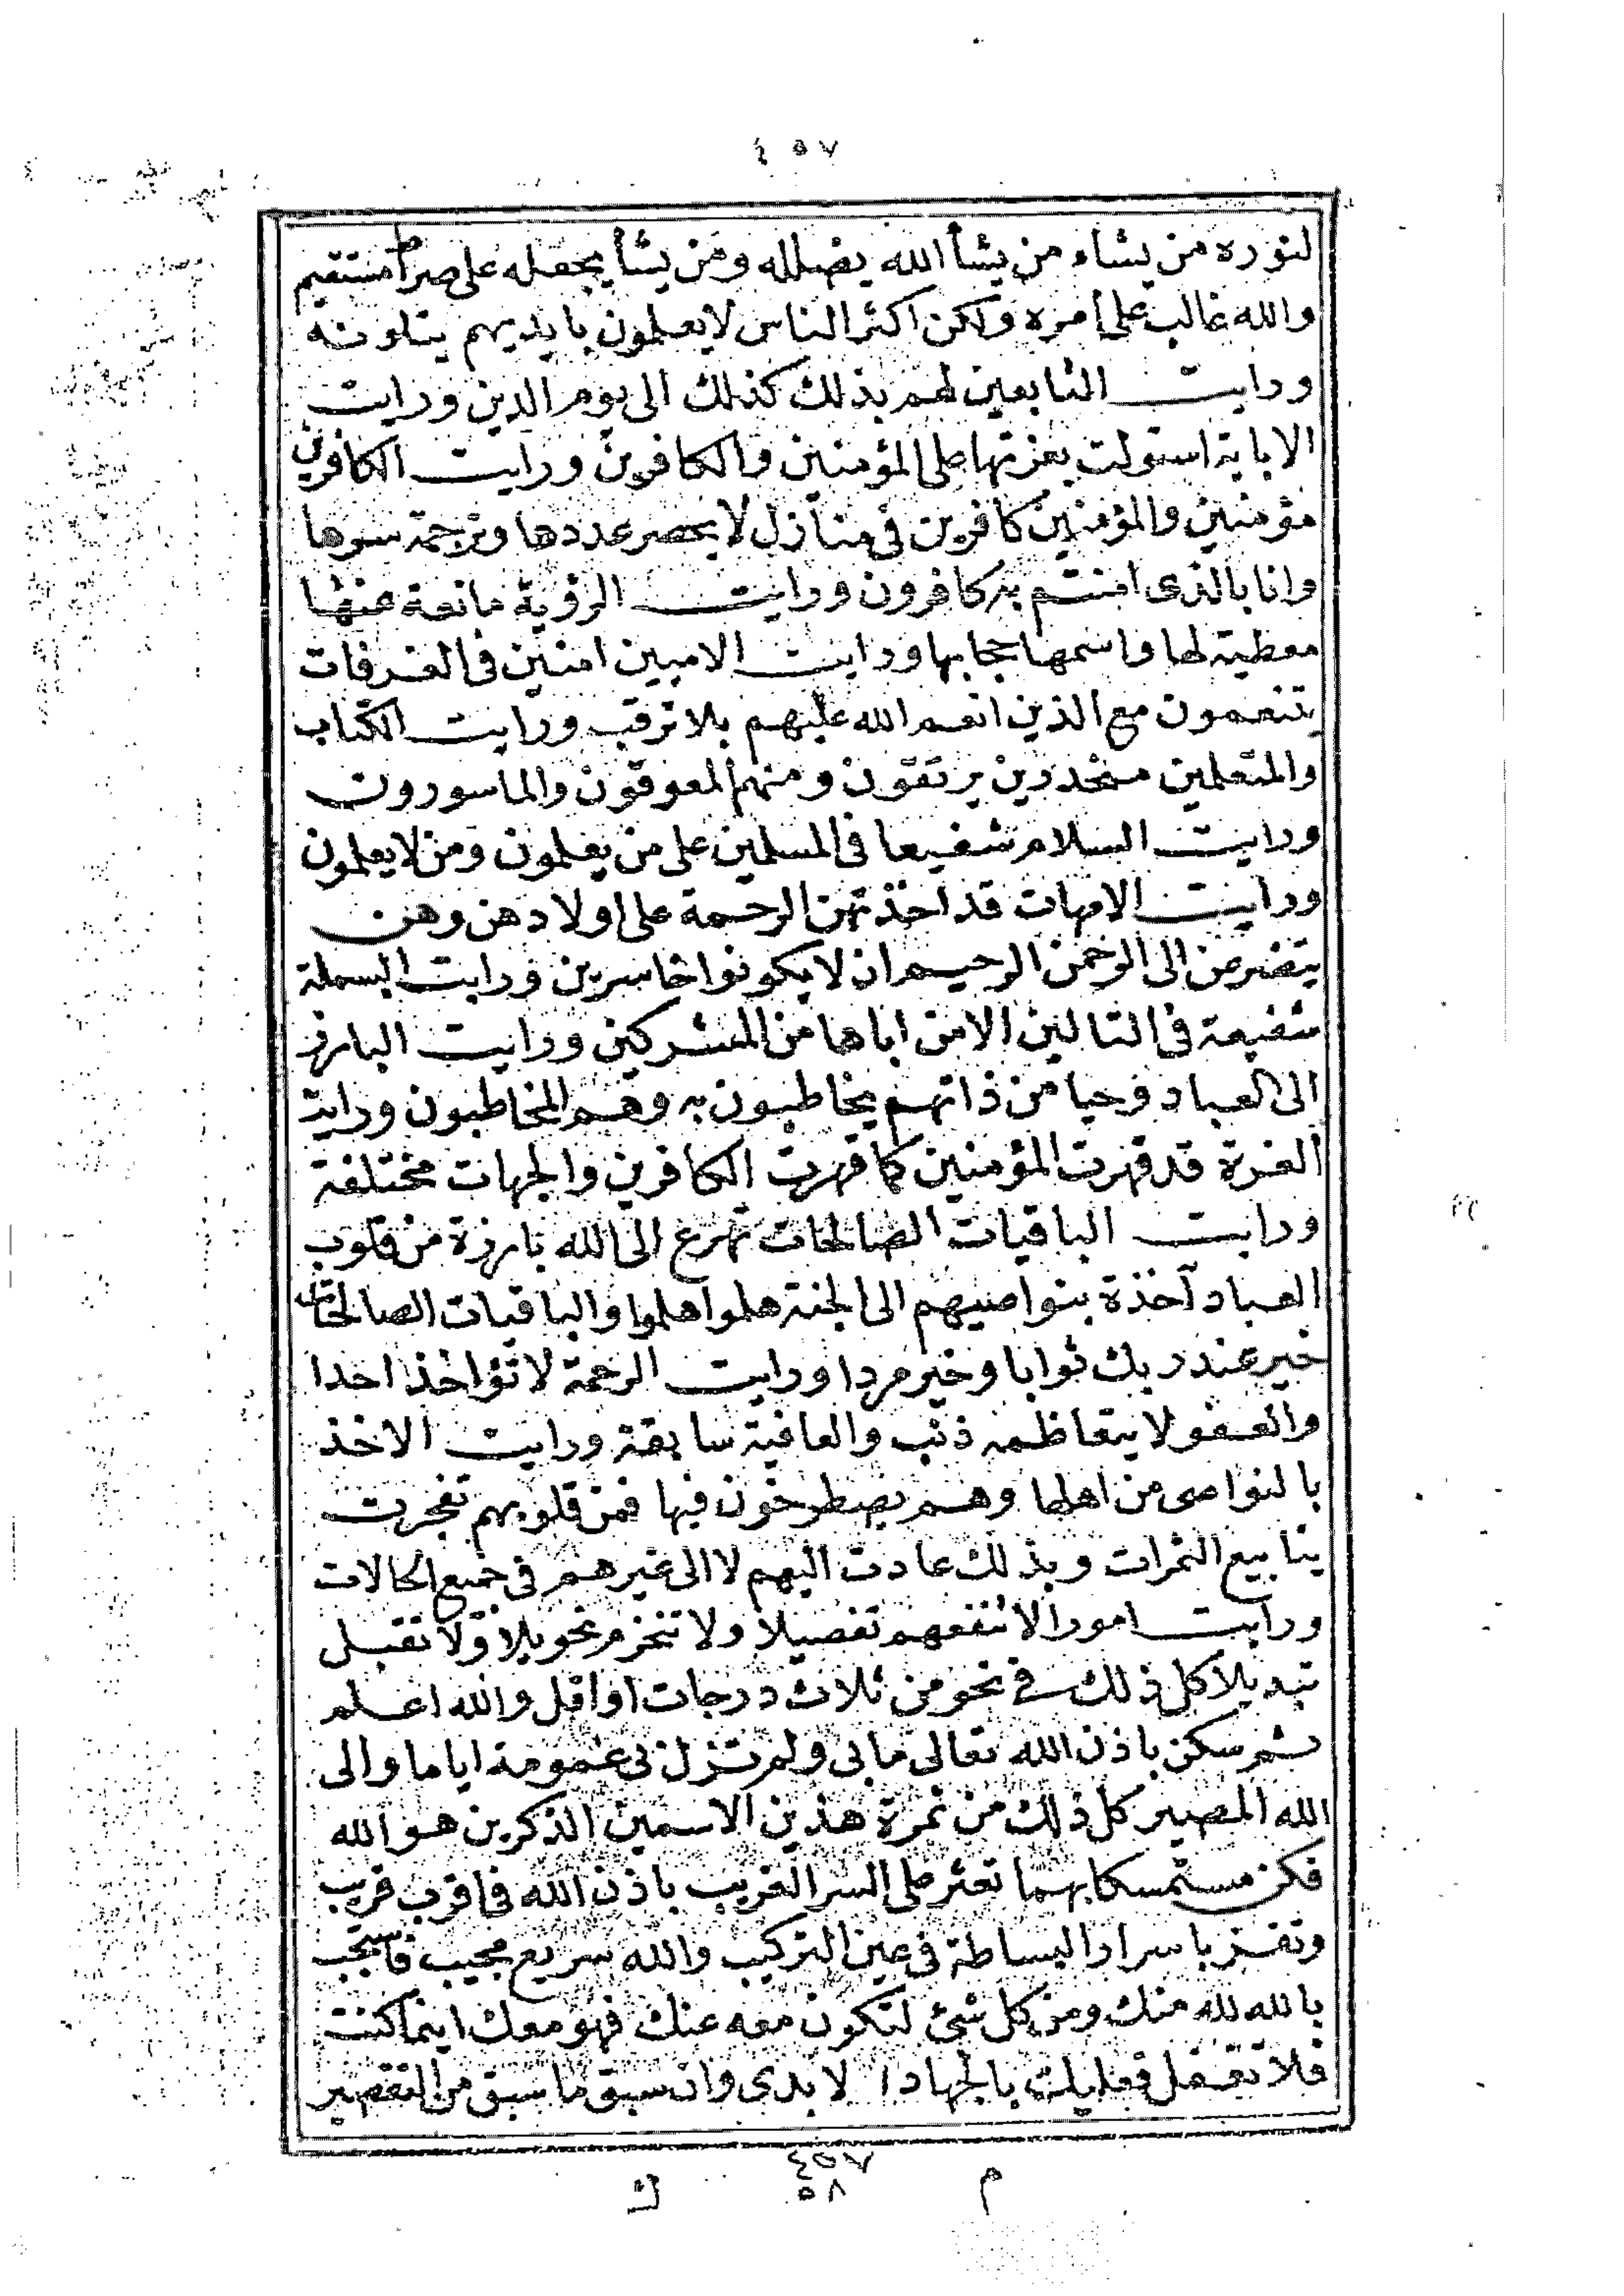 ٤٥٧
لنوره من يشاء من يشأ الله يضلله ومن يشأ يجعله على صراط مستقيم
والله غالب على أمره ولكن اكثر الناس لا يعلمون بايديهم يتلونه
ورايت التابعين لهم بذلك كذلك الى يوم الدين ورايت
الاباية استولت بعزتها على المؤمنين والكافرين ورايت الكافرين
مؤمنين والمؤمنين كافرين فى منازل لا يحصر عددها وترجمة سوها
وانا بالذى امنتم به كافرون ورايت الرؤية مانعة عنها
معطية لها واسمها حجابها ورايت الاميين امنين فى الغرفات
يتنعمون مع الذين انعم الله عليهم بلا ترقب ورايت الكتاب
والمتعلمين منحدرين يرتقون ومنهم المعوقون والماسورون
ورايت السلام شفيعا فى المسلمين على من يعلمون ومن لا يعلمون
ورايت الامهات قد اخذتهن الرحمة على اولادهن وهن
يتضرعن الى الرحمن الرحيم ان لا يكونوا خاسرين ورايت البسملة
شفيعة فى التالين الا من اباها من المشركين ورايت البارز
الى العباد وحيا من ذاتهم يخاطبون به وهم المخاطبون ورايت
العزة قد قهرت المؤمنين كما قهرت الكافرين والجهات مختلفة
ورايت الباقيات الصالحات تهرع الى الله بارزة من قلوب
العباد آخذة بنواصيهم الى الجنة هلموا هلموا والباقيات الصالحات
خير عند ربك ثوابا وخير مردا ورايت الرحمة لا تؤاخذ احدا
والعفو لا يتعاظمه ذنب والعافية سابقة ورايت الاخذ
بالنواصى من اهلها وهم يصطرخون فيها فمن قلوبهم تفجرت
ينابيع الثمرات وبذلك عادت اليهم لا الى غيرهم فى جميع الحالات
ورايت امورا لا تنفعهم تفصيلا ولا تنخرم تحويلا ولا تقبل
تبديلا كل ذلك فى نحو من ثلاث درجات او اقل والله اعلم
ثم سكن باذن الله تعالى ما بى ولم تزل بى عمومة اياما والى
الله المصير كل ذلك من ثمرة هذين الاسمين الذكرين هو الله
فكن مستمسكا بهما تعثر على السر الغريب باذن الله فى اقرب قريب
وتفز باسرار البساطة فى عين التركيب والله سريع مجيب فاستجب
بالله لله منك ومن كل شئ لتكون معه عنك فهو معك اينما كنت
فلا تغفل فعليك بالجهاد الابدى وان سبق ما سبق من التقصير
٤٥٨
٥٨
م
ك